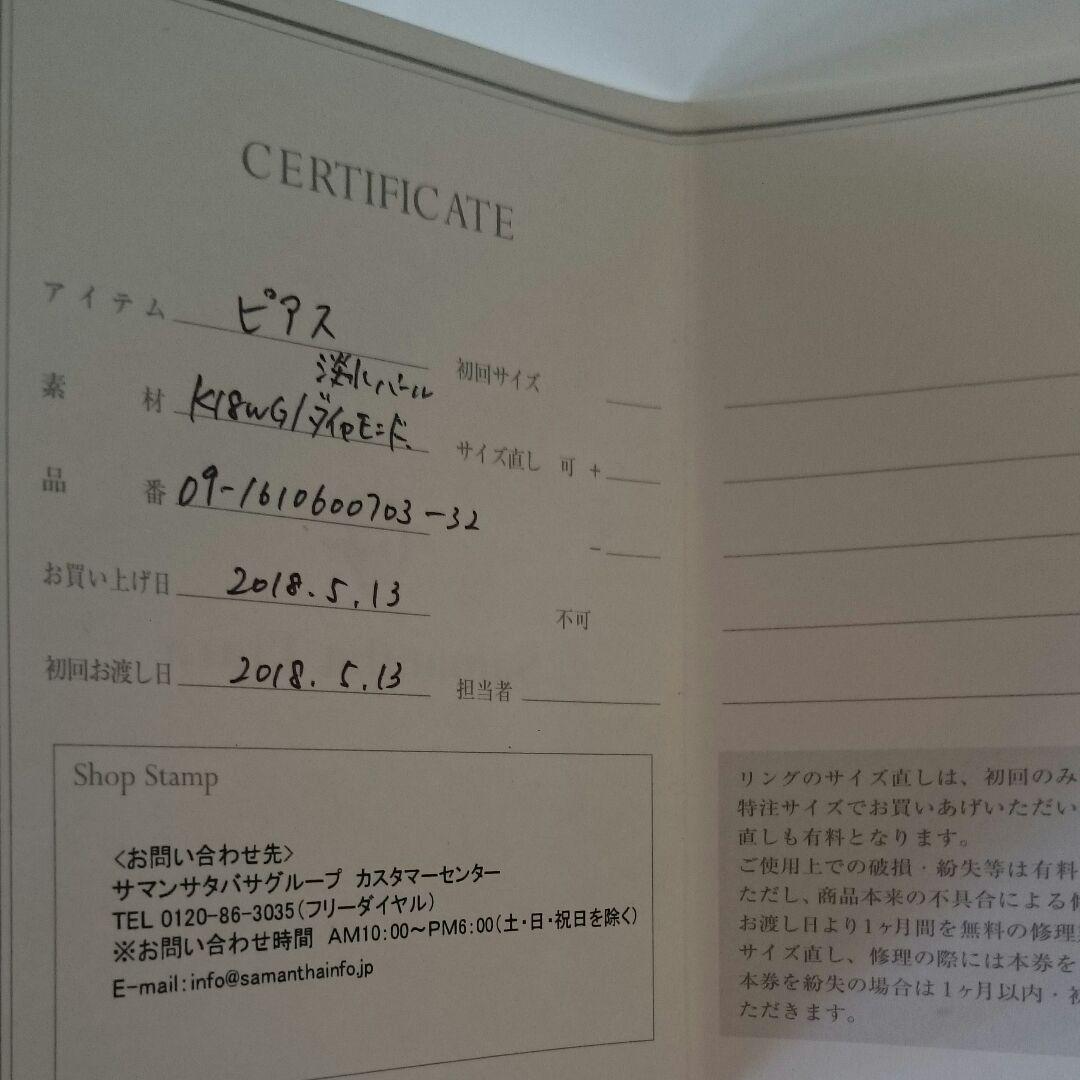 CERTIFICATE
アイテム ピアス
初回サイズ
淡水パール
素材 K18WG/ダイヤモンド
サイズ直し 可 +
品番 09-1610600703-32
-
お買い上げ日 2018.5.13
不可
初回お渡し日 2018.5.13
担当者
Shop Stamp
<お問い合わせ先>
サマンサタバサグループ カスタマーセンター
TEL 0120-86-3035(フリーダイヤル)
※お問い合わせ時間 AM10:00~PM6:00(土・日・祝日を除く)
E-mail:info@samanthainfo.jp
リングのサイズ直しは、初回のみ
特注サイズでお買いあげいただい
直しも有料となります。
ご使用上での破損・紛失等は有料
ただし、商品本来の不具合による修
お渡し日より1ヶ月間を無料の修理
サイズ直し、修理の際には本券を
本券を紛失の場合は1ヶ月以内・初
ただきます。